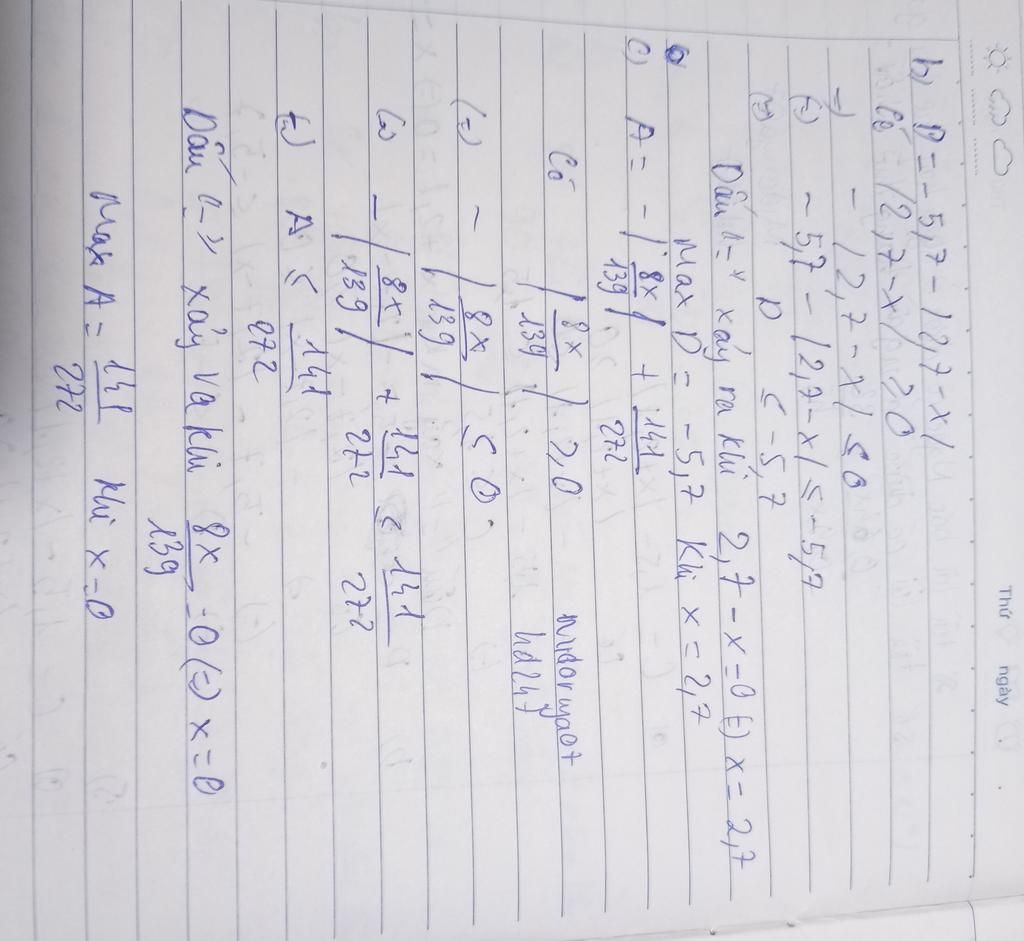 Thứ ngày
b) D = - 5,7 - |2,7 - x|
Có |2,7 - x| ≥ 0
=) - |2,7 - x| ≤ 0
(=) - 5,7 - |2,7 - x| ≤ - 5,7
(=) D ≤ - 5,7
Dấu "=" xảy ra khi 2,7 - x = 0 (=) x = 2,7
Max D = - 5,7 khi x = 2,7
c) A = - |8x/139| + 141/272
Có |8x/139| ≥ 0
hd247
(=) - |8x/139| ≤ 0
(=) - |8x/139| + 141/272 ≤ 141/272
(=) A ≤ 141/272
Dấu "=" xảy ra khi 8x/139 = 0 (=) x = 0
Max A = 141/272 khi x = 0